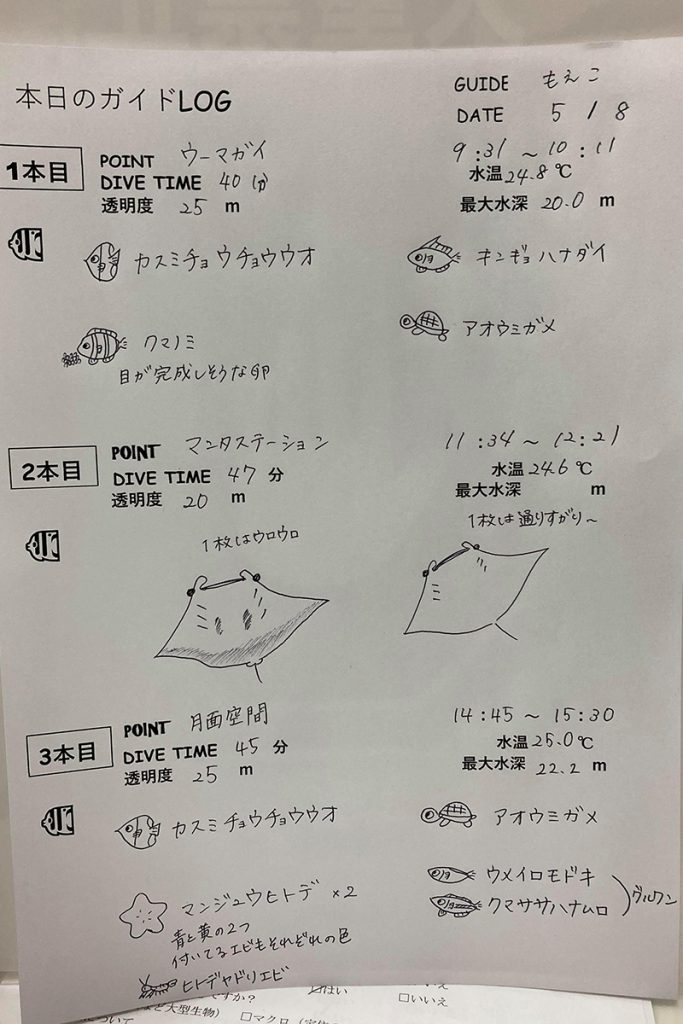 本日のガイドLOG
GUIDE もえこ
DATE 5 / 8
1本目
POINT ウーマガイ
9:31 ~ 10:11
DIVE TIME 40 分
水温 24.8 ℃
透明度 25 m
最大水深 20.0 m
カスミチョウチョウウオ
キンギョハナダイ
クマノミ
目が完成しそうな卵
アオウミガメ
2本目
POINT マンタステーション
11:34 ~ 12:21
DIVE TIME 47 分
水温 24.6 ℃
透明度 20 m
最大水深 m
1枚はウロウロ
1枚は通りすがり~
3本目
POINT 月面空間
14:45 ~ 15:30
DIVE TIME 45 分
水温 25.0 ℃
透明度 25 m
最大水深 22.2 m
カスミチョウチョウウオ
アオウミガメ
マンジュウヒトデ ×2
青と黄の2つ
付いてるエビもそれぞれの色
ヒトデヤドリエビ
ウメイロモドキ
クマササハナムロ
グルクン
ですか?
はい
いいえ
など大型生物)
□マクロ
□いいえ